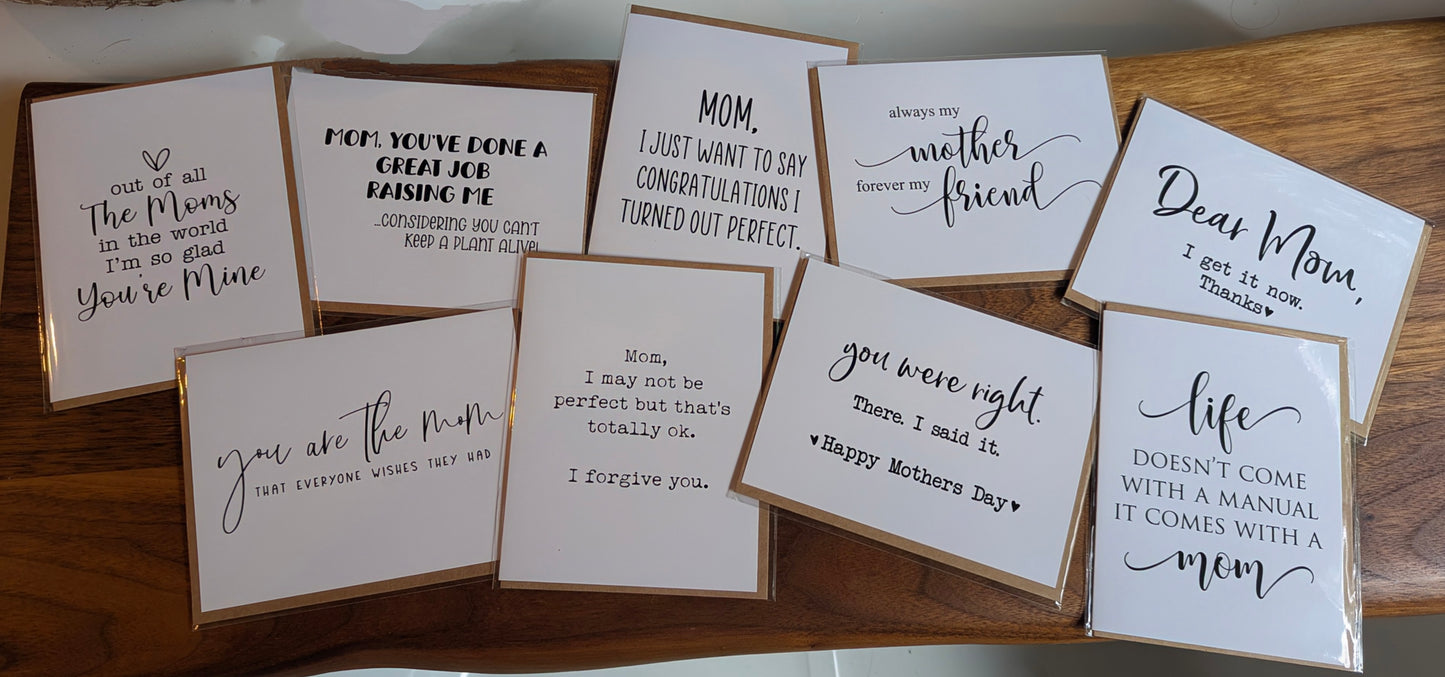 out of all
The Moms
in the world
I'm so glad
You're Mine
MOM, YOU'VE DONE A
GREAT JOB
RAISING ME
...CONSIDERING YOU CAN'T
KEEP A PLANT ALIVE!
MOM,
I JUST WANT TO SAY
CONGRATULATIONS I
TURNED OUT PERFECT.
always my
mother
forever my
friend
Dear Mom,
I get it now.
Thanks♥
you are the mom
THAT EVERYONE WISHES THEY HAD
Mom,
I may not be
perfect but that's
totally ok.
I forgive you.
you were right.
There. I said it.
♥Happy Mothers Day♥
life
DOESN'T COME
WITH A MANUAL
IT COMES WITH A
mom